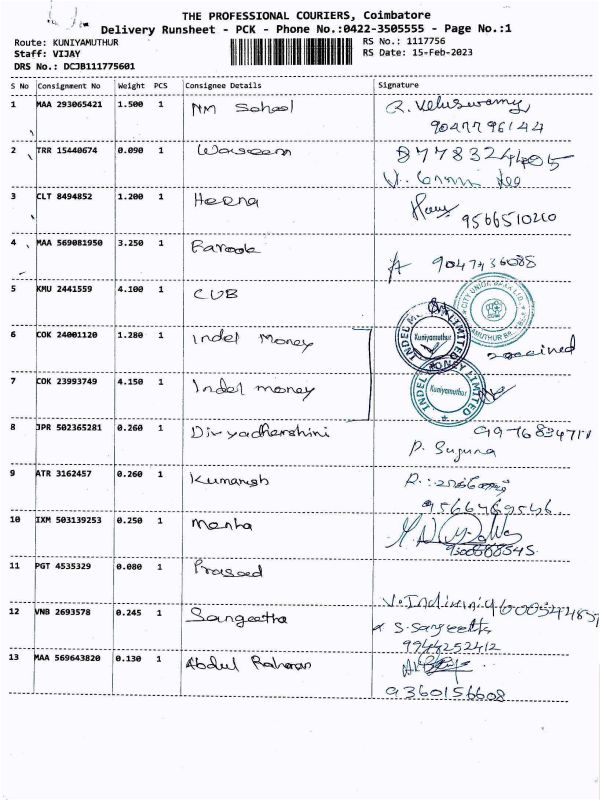 THE PROFESSIONAL COURIERS, Coimbatore
Delivery Runsheet - PCK - Phone No.:0422-3505555 - Page No.:1
Route: KUNIYAMUTHUR
RS No.: 1117756
Staff: VIJAY
RS Date: 15-Feb-2023
DRS No.: DCJB111775601
S No Consignment No Weight PCS Consignee Details Signature
1 MAA 293065421 1.500 1 NM School R. Veluswamy
9047796144
2 TRR 15440674 0.090 1 Waseem 8778324405
3 CLT 8494852 1.200 1 Heena
9566510210
4 MAA 569081950 3.250 1 Farook 9047436088
5 KMU 2441559 4.100 1 CUB
CITY UNION BANK LTD.
6 COK 24001120 1.280 1 Indel Money received
INDEL MONEY LIMITED
Kuniyamuthur
7 COK 23993749 4.150 1 Indel money
INDEL MONEY LIMITED
Kuniyamuthur
8 JPR 502365281 0.260 1 Divyadharshini
P. Suguna
9 ATR 3162457 0.260 1 Kumaresh
10 IXM 503139253 0.250 1
11 PGT 4535329 0.080 1 Prasad
12 VNB 2693578 0.245 1 Sangeetha
S. Sangeetha
9944252412
13 MAA 569643820 0.130 1 Abdul Rahman
9360156608